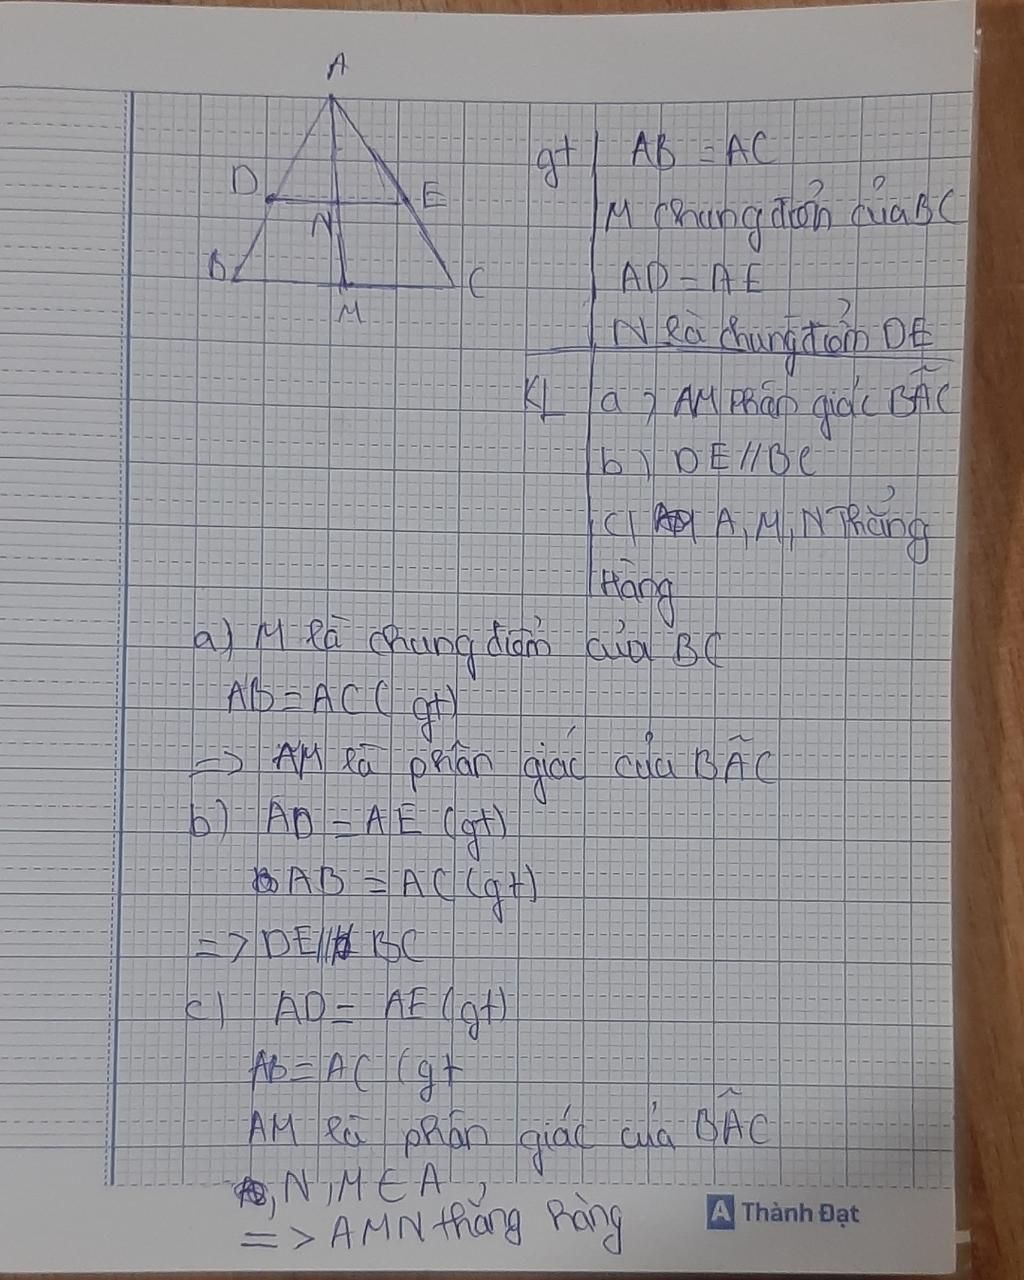 A
D
E
N
B
C
M
gt AB = AC
M chung điểm của BC
AD = AE
N là chung điểm DE
KL a) AM phân giác BÂC
b) DE // BC
c) A, M, N Thẳng
Hàng
a) M là chung điểm của BC
AB = AC (gt)
=> AM là phân giác của BÂC
b) AD = AE (gt)
AB = AC (gt)
=> DE // BC
c) AD = AE (gt)
AB = AC (gt
AM là phân giác của BÂC
, N, M ∈ A,
=> AMN thẳng hàng
A Thành Đạt